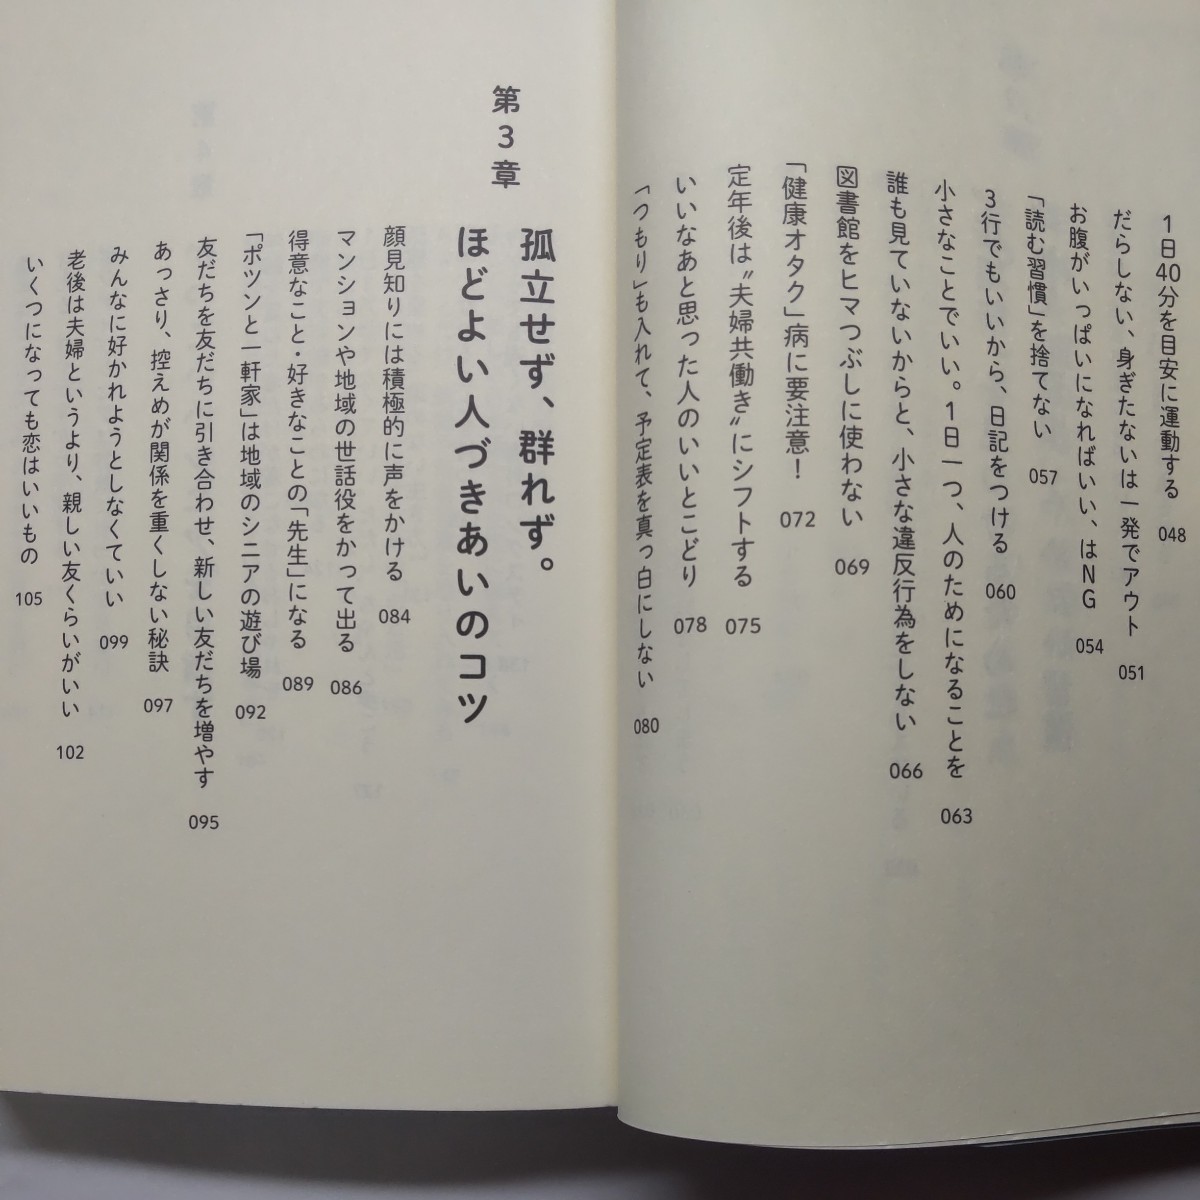 1日40分を目安に運動する 048
だらしない、身ぎたないは一発でアウト 051
お腹がいっぱいになればいい、はNG 054
「読む習慣」を捨てない 057
3行でもいいから、日記をつける 060
小さなことでいい。1日一つ、人のためになることを 063
誰も見ていないからと、小さな違反行為をしない 066
図書館をヒマつぶしに使わない 069
「健康オタク」病に要注意！ 072
定年後は〝夫婦共働き〟にシフトする 075
いいなあと思った人のいいとこどり 078
「つもり」も入れて、予定表を真っ白にしない 080
第3章
孤立せず、群れず。
ほどよい人づきあいのコツ
顔見知りには積極的に声をかける 084
マンションや地域の世話役をかって出る 086
得意なこと・好きなことの「先生」になる 089
「ポツンと一軒家」は地域のシニアの遊び場 092
友だちを友だちに引き合わせ、新しい友だちを増やす 095
あっさり、控えめが関係を重くしない秘訣 097
みんなに好かれようとしなくていい 099
老後は夫婦というより、親しい友くらいがいい 102
いくつになっても恋はいいもの 105